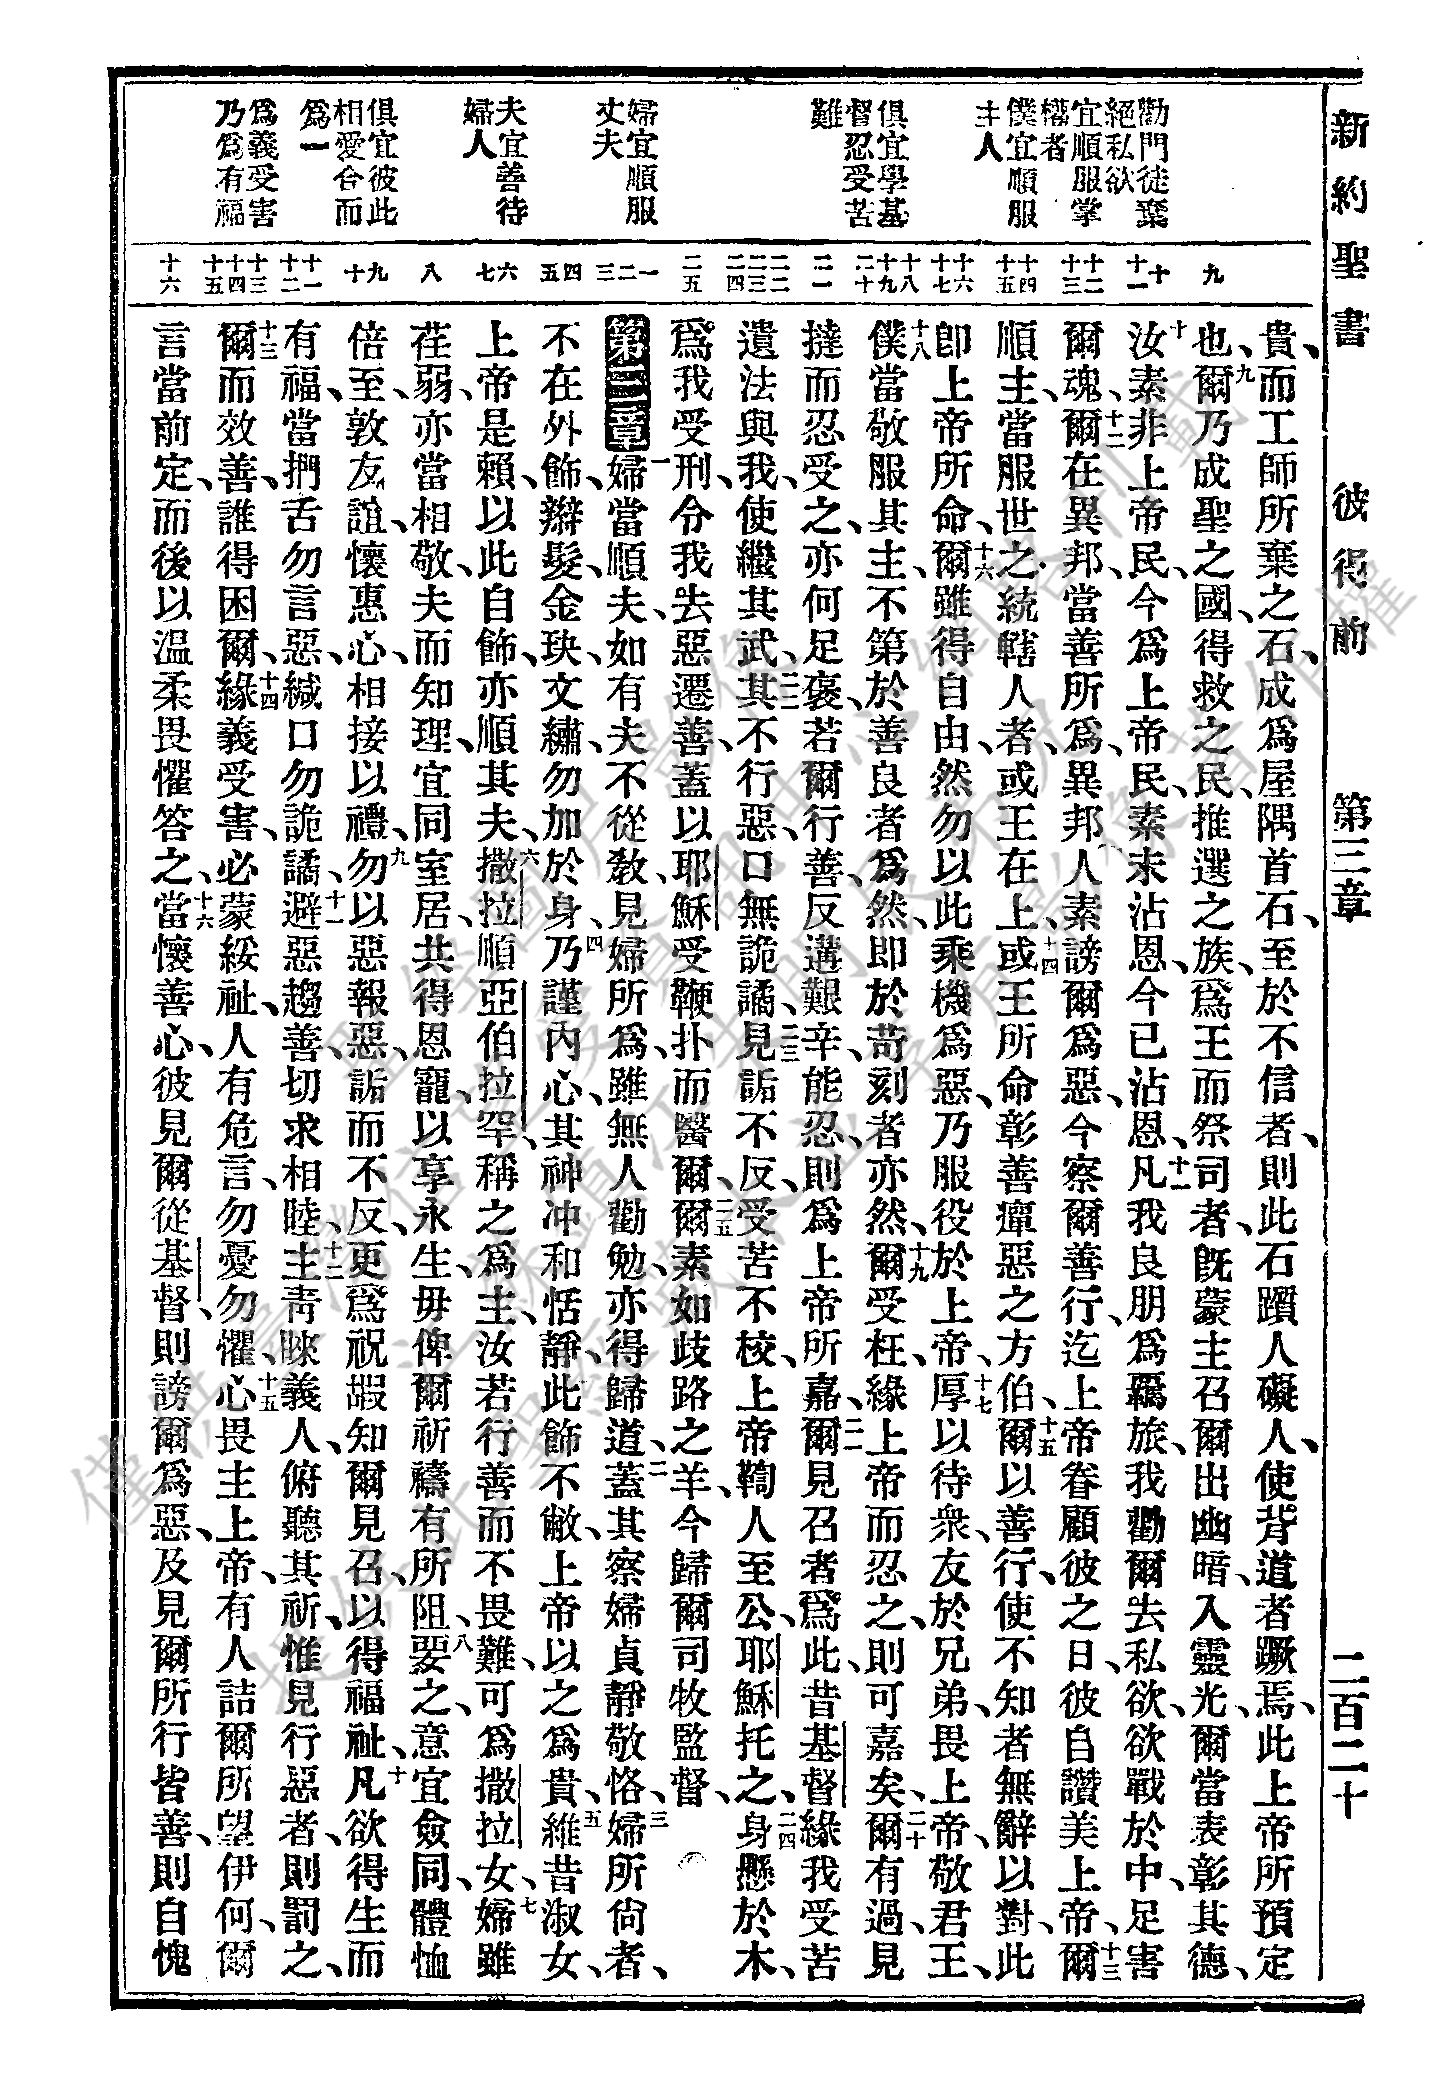 新約聖書 彼得前 第三章 二百二十
勸門徒棄
絕私欲
宜順服掌
權者
僕宜順服
主人
俱宜學基
督忍受苦
難
婦宜順服
丈夫
夫宜善待
婦人
俱宜彼此
相愛合而
爲一
爲義受害
乃爲有福
九 十 十一 十二 十三 十四 十五 十六 十七 十八 十九 二十 二一 二二 二三 二四 二五 一 二 三 四 五 六 七 八 九 十 十一 十二 十三 十四 十五 十六
貴、而工師所棄之石、成爲屋隅首石、至於不信者、則此石躓人礙人、使背道者蹶焉、此上帝所預定
也、九爾乃成聖之國、得救之民、推選之族、爲王而祭司者、旣蒙主召爾出幽暗、入靈光、爾當表彰其德、
十汝素非上帝民、今爲上帝民、素未沾恩、今已沾恩、十一凡我良朋爲羈旅、我勸爾去私欲、欲戰於中、足害
爾魂、十二爾在異邦、當善所爲、異邦人素謗爾爲惡、今察爾善行、迄上帝眷顧彼之日、彼自讚美上帝、十三爾
順主、當服世之統轄人者、或王在上、十四或王所命彰善癉惡之方伯、十五爾以善行、使不知者無辭以對、此
卽上帝所命、十六爾雖得自由、然勿以此乘機爲惡、乃服役於上帝、十七厚以待衆、友於兄弟、畏上帝、敬君王、
十八僕當敬服其主、不第於善良者爲然、卽於苛刻者亦然、十九爾受枉、緣上帝而忍之、則可嘉矣、二十爾有過、見
撻而忍受之、亦何足褒、若爾行善、反遘艱辛、能忍、則爲上帝所嘉、二一爾見召者爲此、昔基督緣我受苦
遺法與我、使繼其武、二二其不行惡、口無詭譎、二三見詬不反、受苦不校、上帝鞫人至公、耶穌托之、二四身懸於木、
爲我受刑、令我去惡遷善、蓋以耶穌受鞭扑而醫爾、二五爾素如歧路之羊、今歸爾司牧監督、
第三章 一婦當順夫、如有夫不從敎、見婦所爲、雖無人勸勉、亦得歸道、二蓋其察婦貞靜敬恪、三婦所尙者、
不在外飾、辮髮、金玦、文繡、勿加於身、四乃謹內心、其神冲和恬靜、此飾不敝、上帝以之爲貴、五維昔淑女、
上帝是賴、以此自飾、亦順其夫、六撒拉順亞伯拉罕、稱之爲主、汝若行善而不畏難、可爲撒拉女、七婦雖
荏弱、亦當相敬、夫而知理、宜同室居、共得恩寵、以享永生、毋俾爾祈禱有所阻、八要之、意宜僉同、體恤
倍至、敦友誼、懷惠心、相接以禮、九勿以惡報惡、詬而不反、更爲祝嘏、知爾見召、以得福祉、十凡欲得生而
有福、當捫舌勿言惡、緘口勿詭譎、十一避惡趨善、切求相睦、十二主靑睞義人、俯聽其祈、惟見行惡者、則罰之、
十三爾而效善、誰得困爾、十四緣義受害、必蒙綏祉、人有危言、勿憂勿懼、十五心畏主上帝、有人詰爾所望伊何、爾
言當前定、而後以溫柔畏懼答之、十六當懷善心、彼見爾從基督、則謗爾爲惡、及見爾所行皆善、則自愧